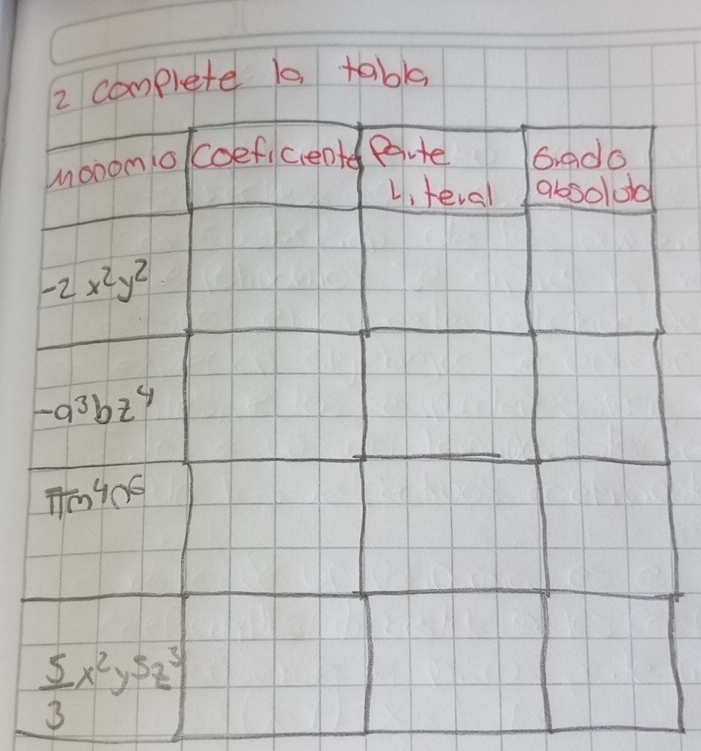 2 complete la tabla
Monomio Coeficiente Parte Literal Grado absoluto
-2x²y²
-a³bz⁴
πm⁴n⁶
5/3 x²y⁵z³